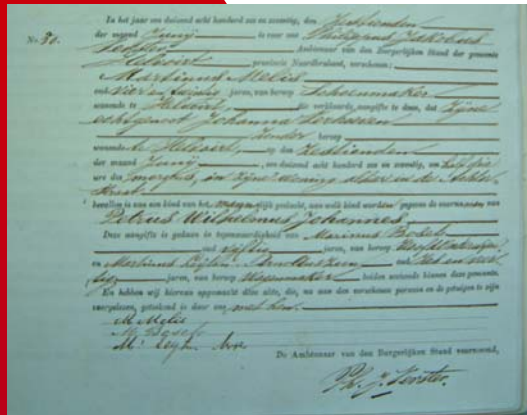 In het jaar een duizend acht honderd zes en zeventig, den Zestienden
No. 30. der maand Junij is voor ons Philippus Jakobus
Verster Ambtenaar van den Burgerlijken Stand der gemeente
Helvoirt, provincie Noordbrabant, verschenen:
Martinus Melis
oud vier en twintig jaren, van beroep Schoenmaker
wonende te Helvoirt, die verklaarde aangifte te doen, dat Zijne
echtgenoot Johanna Verhoeven
Zonder beroep
wonende te Helvoirt, op den Zestienden
der maand Junij, een duizend acht honderd zes en zeventig, om half drie
ure des smorgens, in Zijne woning alhier in de Achter-
straat
bevallen is van een kind van het geslacht, aan welk kind worden gegeven de voornamen van
Petrus Wilhelmus Johannes
Deze aangifte is gedaan in tegenwoordigheid van Marinus
oud vijftig jaren, van beroep
en Martinus oud
jaren, van beroep Wagenmaker beiden wonende binnen deze gemeente.
En hebben wij hiervan opgemaakt deze akte, die, na aan den verschenen persoon en de getuigen te zijn
voorgelezen, geteekend is door ons met hen.
M Melis
M
M
De Ambtenaar van den Burgerlijken Stand voornoemd,
Ph. J. Verster